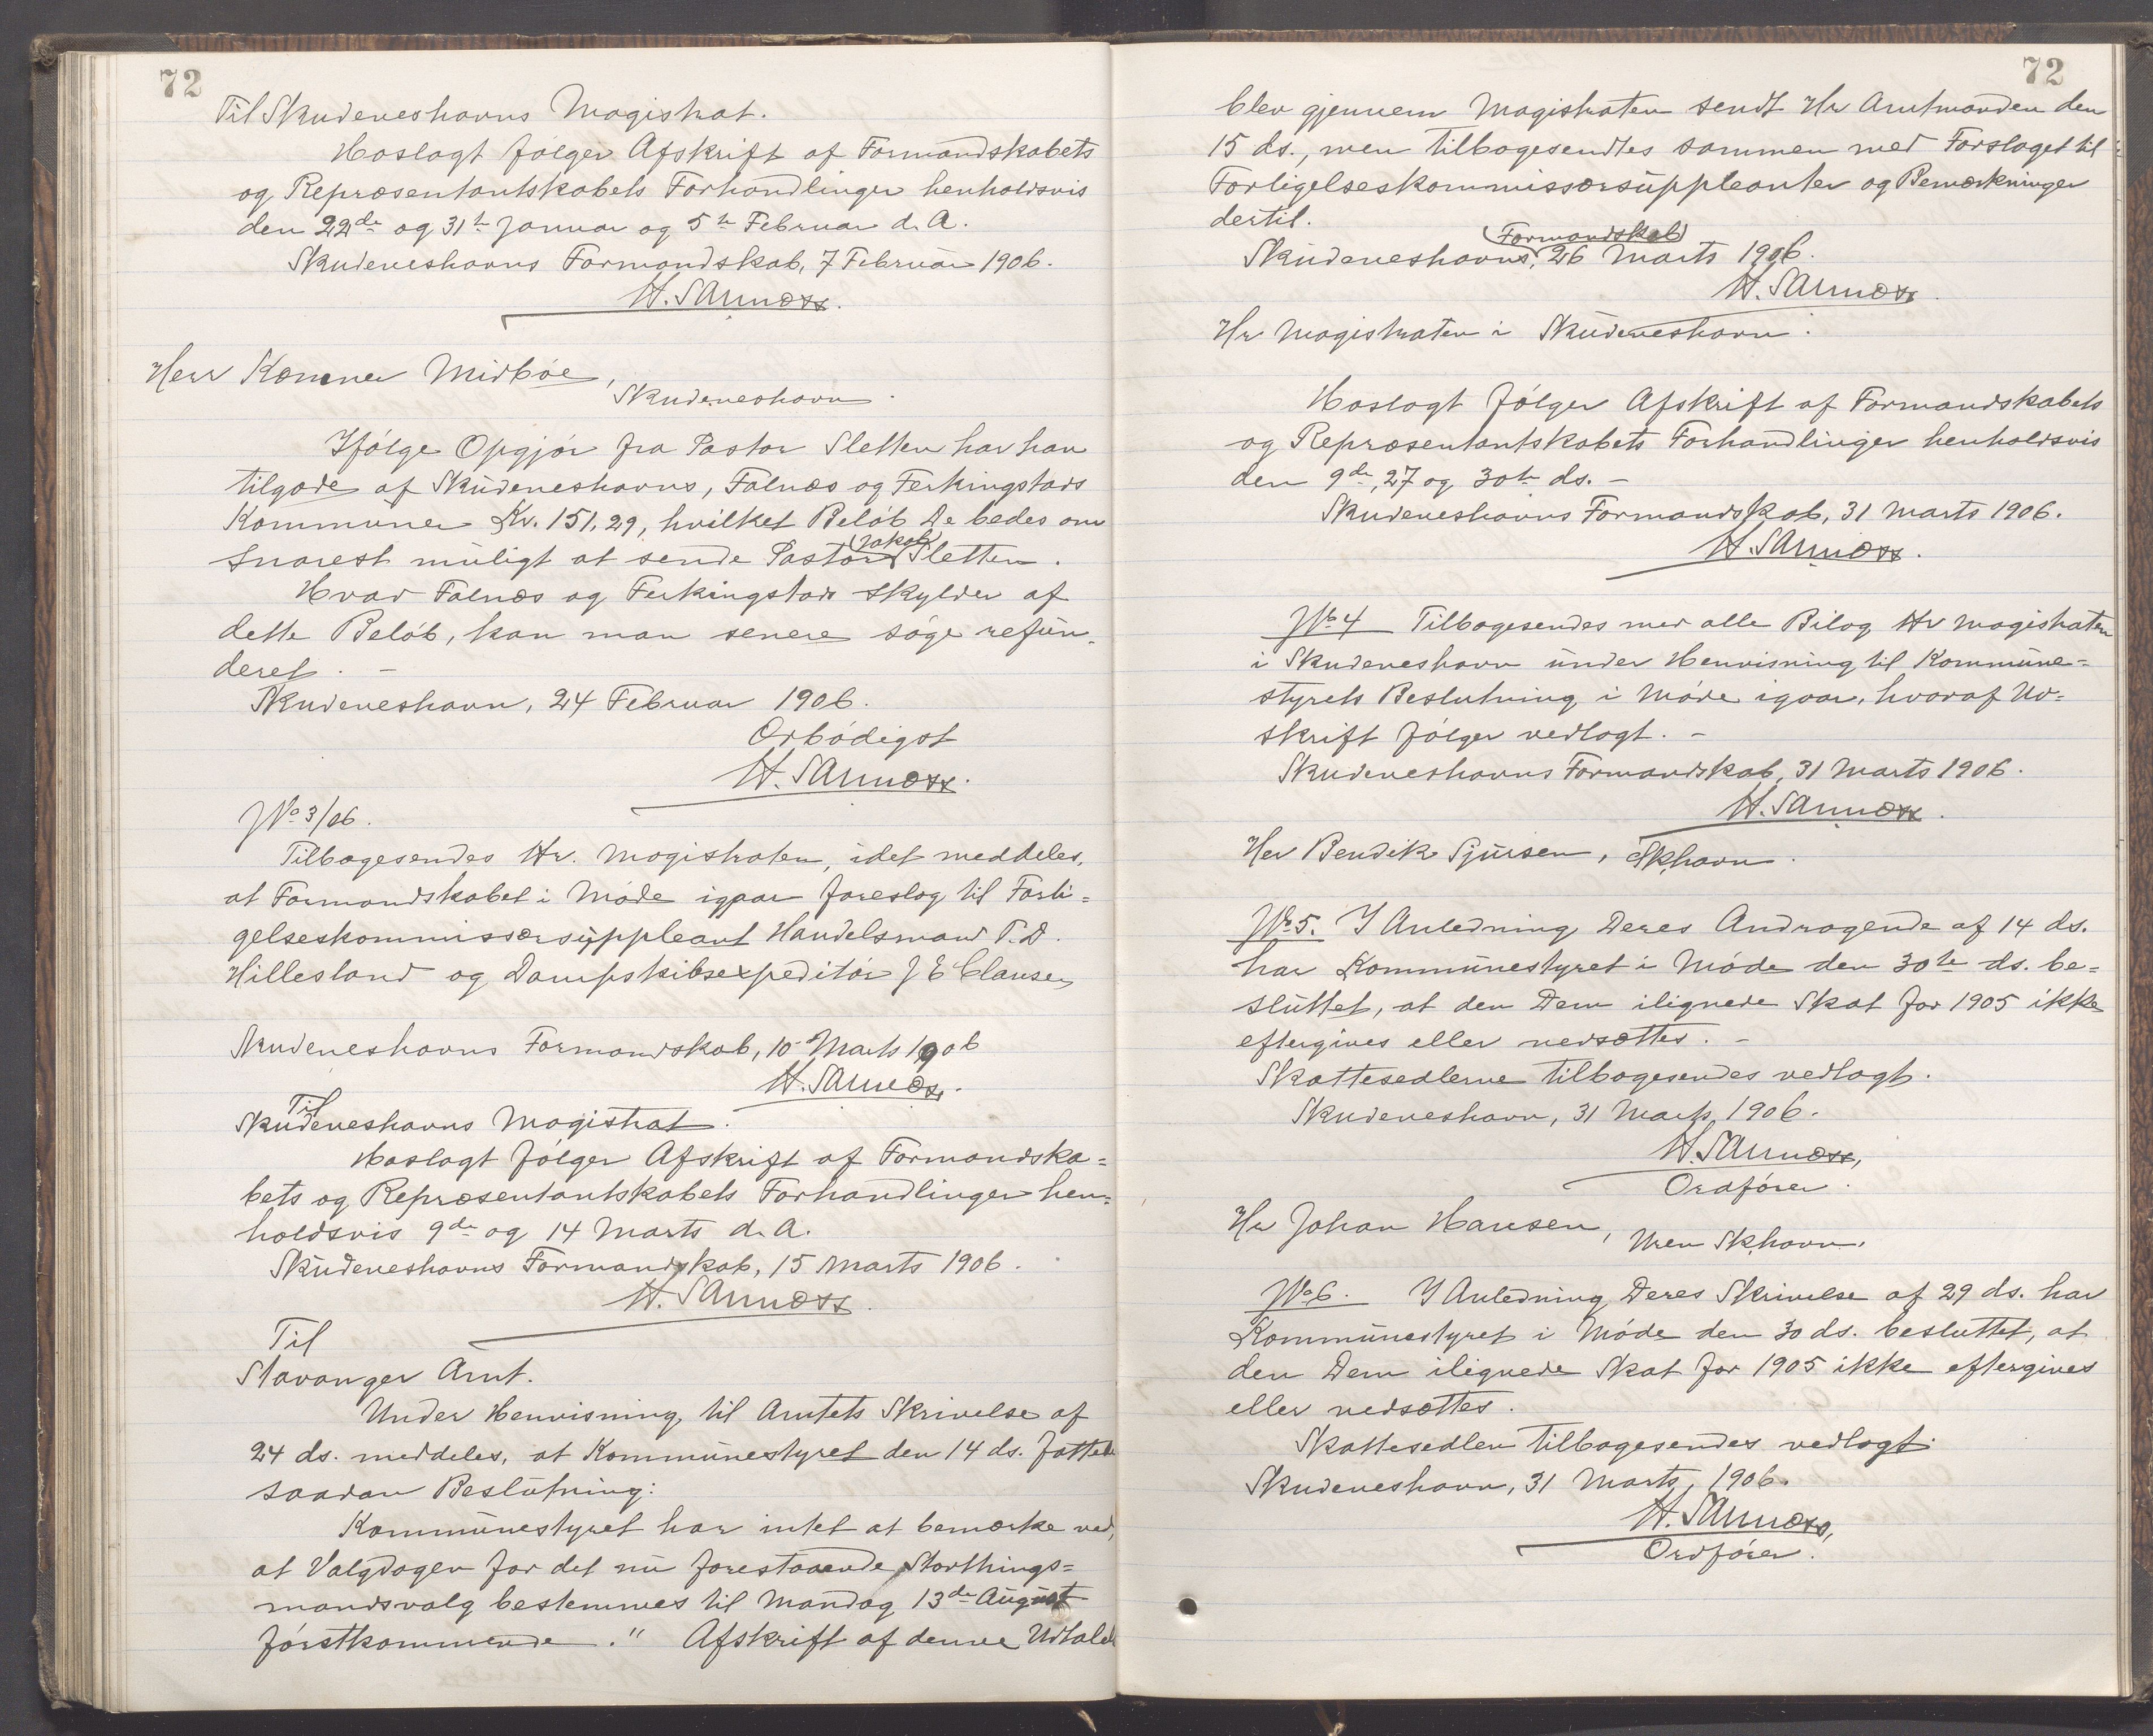 72
Til Skudeneshavns Magistrat.
Hoslagt følger Afskrift af Formandskabets
og Repræsentantskabets Forhandlinger henholdsvis
den 22de og 31te Januar og 5te Februar d. A.
Skudeneshavns Formandskab, 7 Februar 1906.
H. S. Aunæss.
Herr Kæmner Midbøe,
Skudeneshavn.
Ifølge Opgjør fra Pastor Sletten har han
tilgode af Skudeneshavns, Falnæs og Ferkingstads
Kommuner Kr. 151,29, hvilket Beløb De bedes om
snarest muligt at sende Pastor (Jakob) Sletten.
Hvad Falnæs og Ferkingstads skylder af
dette Beløb, kan man senere søge refun-
deret. -
Skudeneshavn, 24 Februar 1906.
Ærbødigst
H. S. Aunæss.
No 3/06.
Tilbagesendes Hr. Magistraten, idet meddeles,
at Formandskabet i Møde igaar foreslog til Forli=
gelseskommissærsuppleant Handelsmand T. D.
Hillesland og Dampskibsexpeditør J E Clausen
Skudeneshavns Formandskab, 10 Marts 1906
H. S. Aunæss.
Til
Skudeneshavns Magistrat.
Hoslagt følger Afskrift af Formandska=
bets og Repræsentantskabets Forhandlinger hen=
holdsvis 9de og 14 Marts d. A.
Skudeneshavns Formandskab, 15 Marts 1906.
H. S. Aunæss.
Til
Stavanger Amt.
Under Henvisning til Amtets Skrivelse af
24 ds. meddeles, at Kommunestyret den 14 ds. fattet
saadan Beslutning:
Kommunestyret har intet at bemærke ved,
at Valgdagen for det nu forestaaende Storthings=
mandsvalg bestemmes til Mandag 13de August
førstkommende." Afskrift af denne Udtalelse
72
blev gjennem Magistraten sendt Hr Amtmanden den
15 ds., men tilbagesendtes sammen med Forslaget til
Forligelseskommissærsuppleanter og Bemærkninger
dertil.
Skudeneshavns (Formandskab), 26 Marts 1906.
H. S. Aunæss.
Hr Magistraten i Skudeneshavn.
Hoslagt følger Afskrift af Formandskabets
og Repræsentantskabets Forhandlinger henholdsvis
den 9de, 27 og 30te ds. -
Skudeneshavns Formandskab, 31 Marts 1906.
H. S. Aunæss.
No 4 Tilbagesendes med alle Bilag Hr Magistraten
i Skudeneshavn under Henvisning til Kommune=
styrets Beslutning i Møde igaar, hvoraf Ud=
skrift følger vedlagt. -
Skudeneshavns Formandskab, 31 Marts 1906.
H. S. Aunæss.
Her Bendik Sjursen, Skhavn.
No 5. I Anledning Deres Andragende af 14 ds.
har Kommunestyret i Møde den 30te ds. be=
sluttet, at den Dem ilignede Skat for 1905 ikke
eftergives eller nedsættes. -
Skattesedlerne tilbagesendes vedlagt.
Skudeneshavn, 31 Marts, 1906.
H. S. Aunæss,
Ordfører.
Hr Johan Hansen,
Uren Skhavn.
No 6. I Anledning Deres Skrivelse af 29 ds. har
Kommunestyret i Møde den 30 ds. besluttet, at
den Dem ilignede Skat for 1905 ikke eftergives
eller nedsættes.
Skattesedlen tilbagesendes vedlagt.
Skudeneshavn, 31 Marts, 1906.
H. S. Aunæss,
Ordfører.